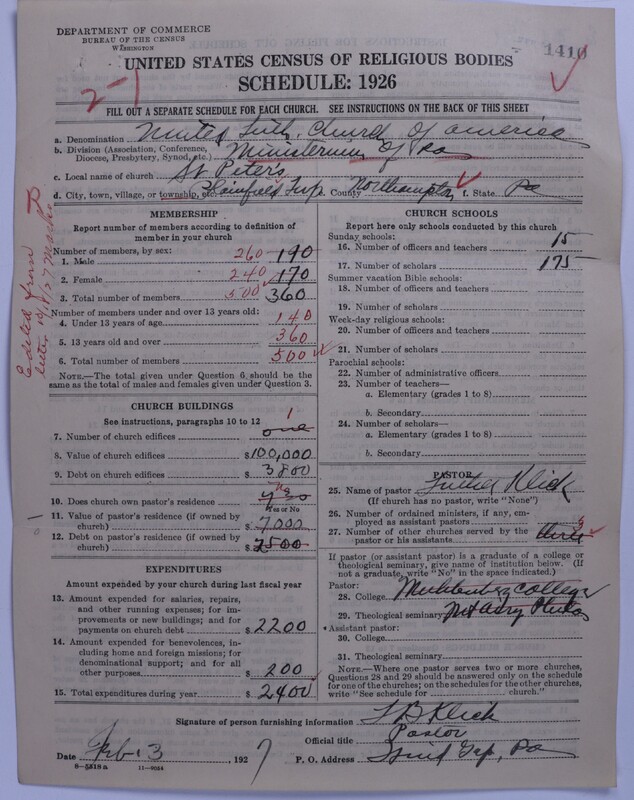 DEPARTMENT OF COMMERCE
BUREAU OF THE CENSUS
WASHINGTON
1410
UNITED STATES CENSUS OF RELIGIOUS BODIES
SCHEDULE: 1926
2-1
FILL OUT A SEPARATE SCHEDULE FOR EACH CHURCH. SEE INSTRUCTIONS ON THE BACK OF THIS SHEET
a. Denomination United Luth. Church Of america
b. Division (Association, Conference, Diocese, Presbytery, Synod, etc.) Ministerium Of Pa
c. Local name of church St Peter's
d. City, town, village, or township, etc. Plainfield Twp e. County Northampton f. State Pa
Edited from letter 10/8/27
MEMBERSHIP
Report number of members according to definition of
member in your church
Number of members, by sex:
1. Male 260 190
2. Female 240 170
3. Total number of members 500 360
Number of members under and over 13 years old:
4. Under 13 years of age 140
5. 13 years old and over 360
6. Total number of members 500
NOTE.—The total given under Question 6 should be
the same as the total of males and females given under Question 3.
CHURCH BUILDINGS
See instructions, paragraphs 10 to 12
1
7. Number of church edifices one
8. Value of church edifices $100,000
9. Debt on church edifices $ 3800
no
10. Does church own pastor's residence yes
Yes or No
11. Value of pastor's residence (if owned by
church) $ 7000
12. Debt on pastor's residence (if owned by
church) $ 2500
EXPENDITURES
Amount expended by your church during last fiscal year
13. Amount expended for salaries, repairs,
and other running expenses; for im-
provements or new buildings; and for
payments on church debt $ 2200
14. Amount expended for benevolences, in-
cluding home and foreign missions; for
denominational support; and for all
other purposes $ 200
15. Total expenditures during year $ 2400
CHURCH SCHOOLS
Report here only schools conducted by this church
Sunday schools:
16. Number of officers and teachers 15
17. Number of scholars 175
Summer vacation Bible schools:
18. Number of officers and teachers
19. Number of scholars
Week-day religious schools:
20. Number of officers and teachers
21. Number of scholars
Parochial schools:
22. Number of administrative officers
23. Number of teachers—
a. Elementary (grades 1 to 8)
b. Secondary
24. Number of scholars—
a. Elementary (grades 1 to 8)
b. Secondary
PASTOR
25. Name of pastor Luther Klick
(If church has no pastor, write "None")
26. Number of ordained ministers, if any, em-
ployed as assistant pastors
3
27. Number of other churches served by the
pastor or his assistants three
If pastor (or assistant pastor) is a graduate of a college or
theological seminary, give name of institution below. (If
not a graduate, write "No" in the space indicated.)
Pastor:
28. College Muhlenberg College
29. Theological seminary Mt Airy Phila
Assistant pastor:
30. College
31. Theological seminary
NOTE.—Where one pastor serves two or more churches,
Questions 28 and 29 should be answered only on the schedule
for one of the churches; on the schedules for the other churches,
write "See schedule for church."
Signature of person furnishing information L B Klick
Official title Pastor
Date Feb 13, 1927 P. O. Address Wind Gap, Pa
8-5318a 11-9054